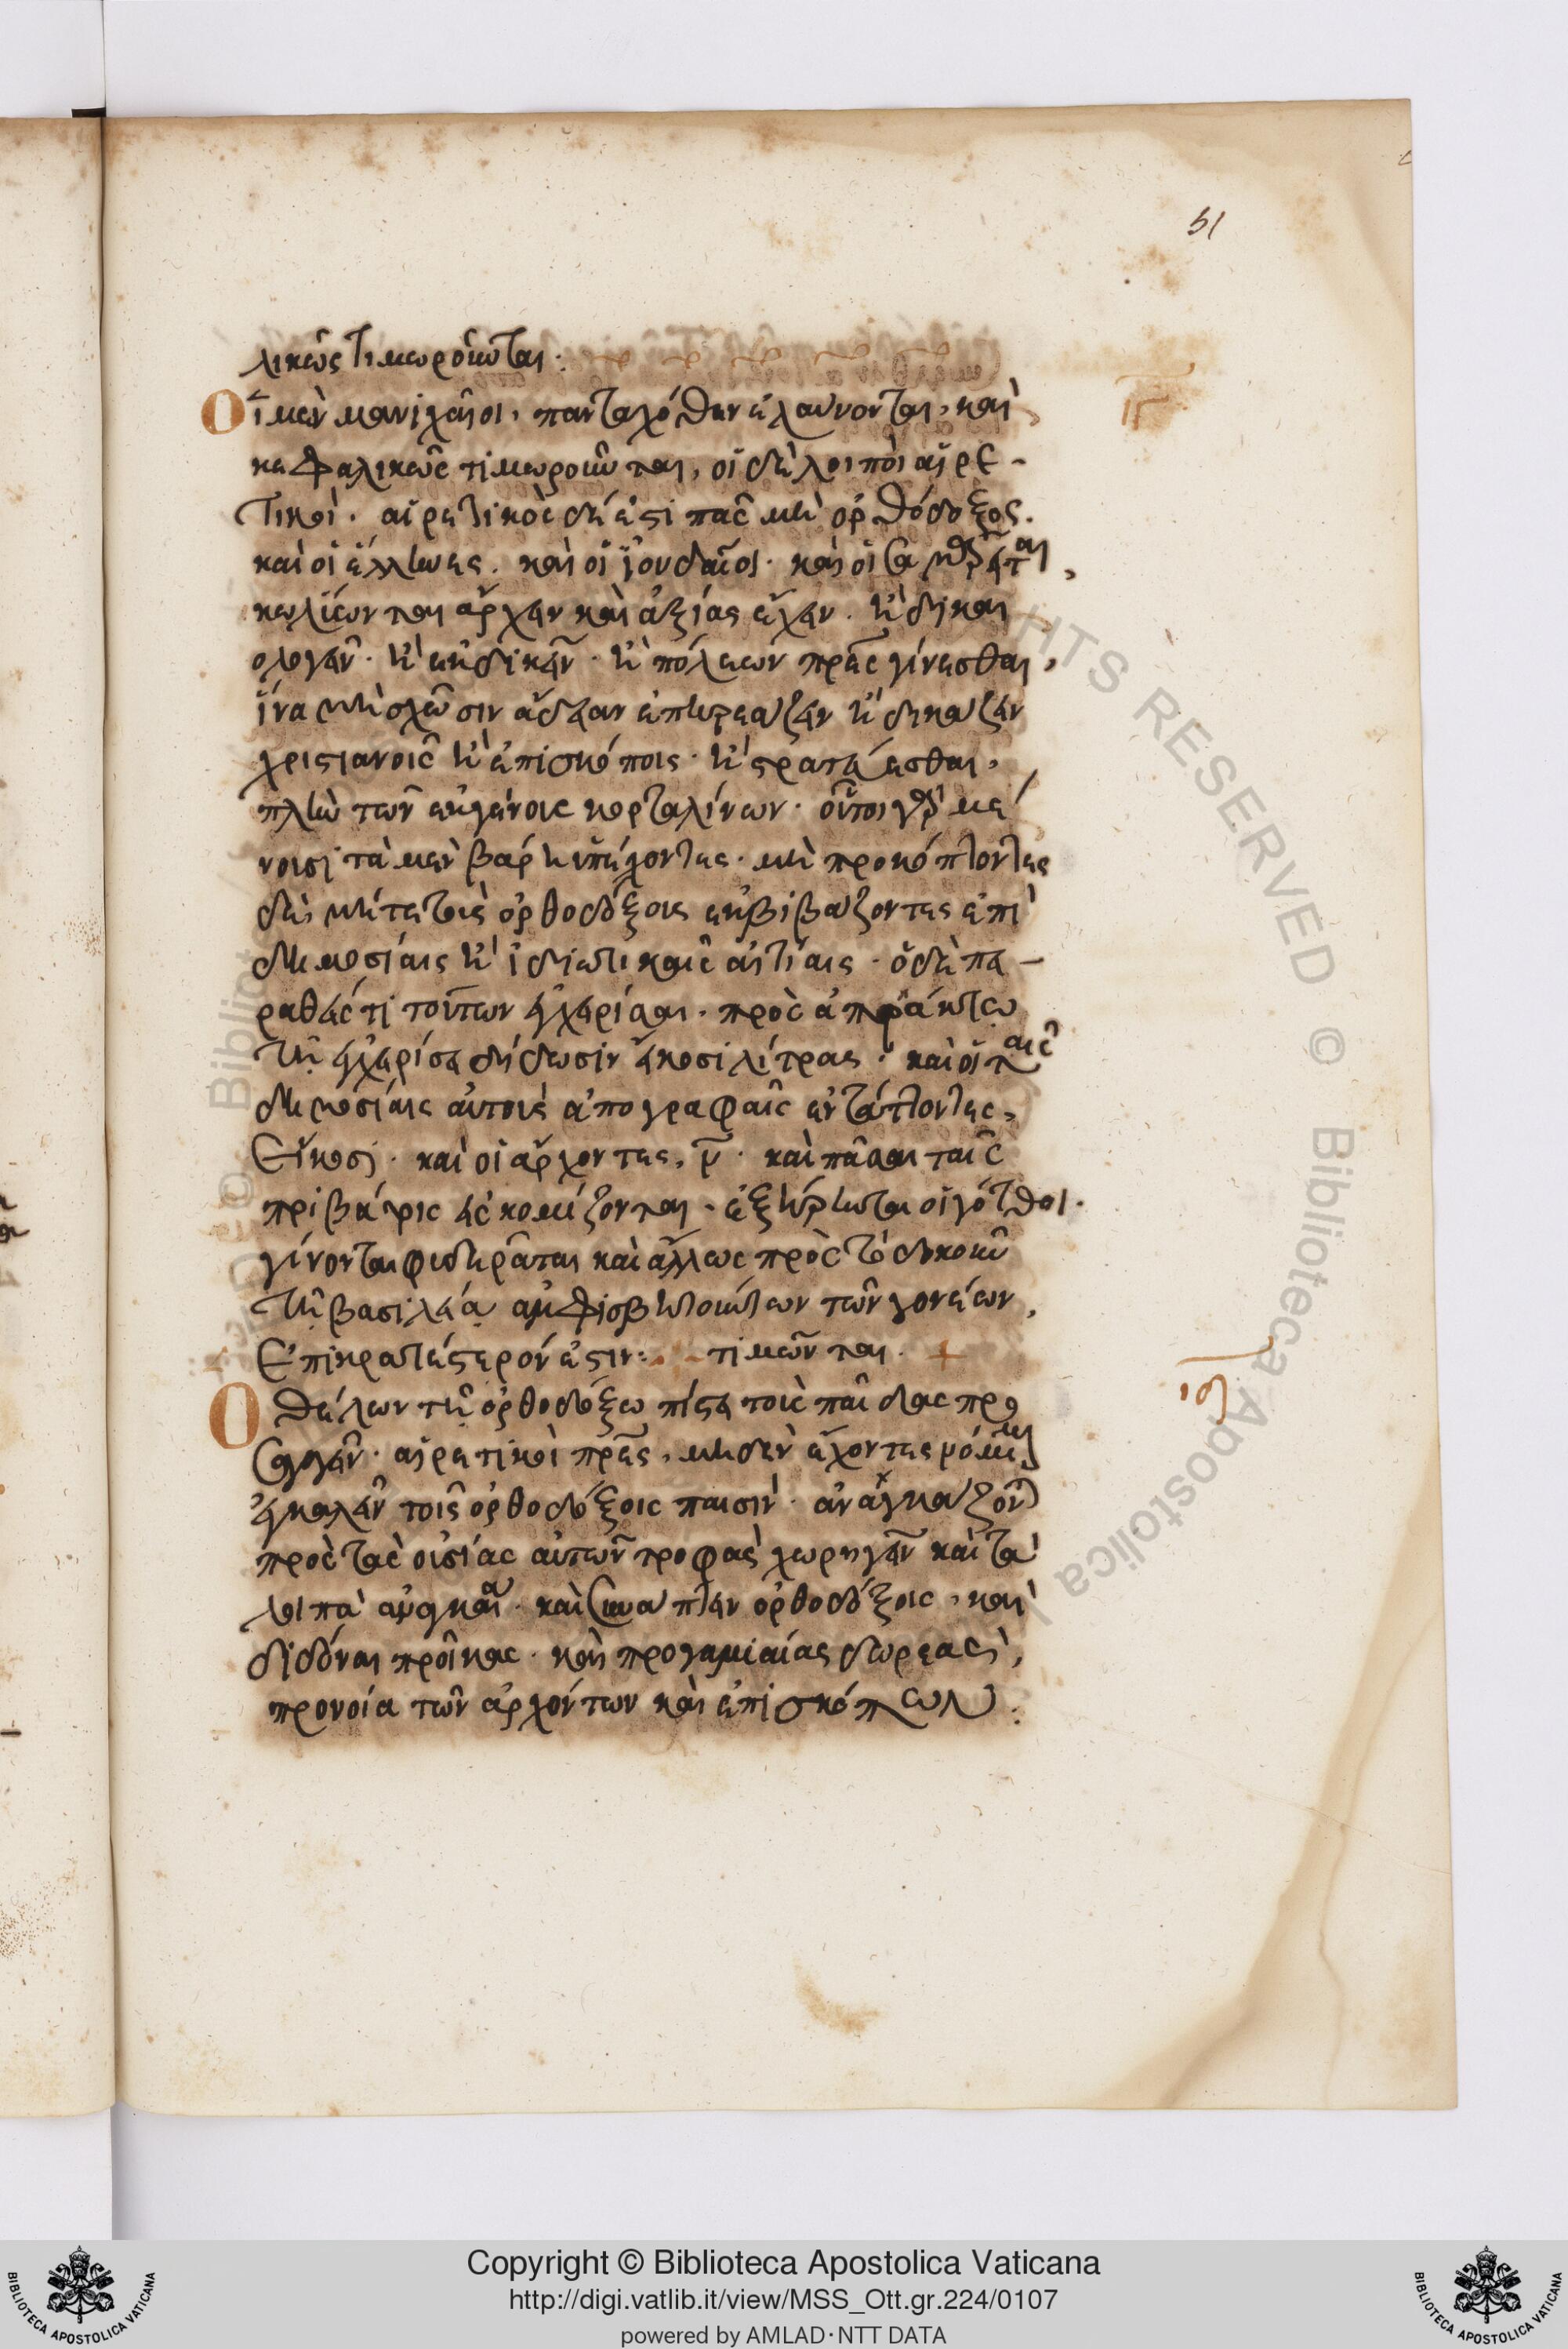 51
λικῶς τιμωροῦνται·
Οἱ μὲν μανιχαῖοι, πανταχόθεν ἐλαύνονται, καὶ
κεφαλικῶς τιμωροῦνται, οἱ δὲ λοιποὶ αἱρε-
τικοί. αἱρετικὸς δέ ἐστι πᾶς μὴ ὀρθόδοξος.
καὶ οἱ ἕλληνες. καὶ οἱ ἰουδαῖοι. καὶ οἱ σαμαρεῖται,
κωλύονται ἄρχειν καὶ ἀξίας ἔχειν. καὶ δικαι
ολογεῖν. καὶ ἐκδικεῖν. καὶ πόλεων πρες γίνεσθαι,
ἵνα μὴ σχῶσιν ἄδειαν ἐπηρεάζειν καὶ δικάζειν
χριστιανοῖς καὶ ἐπισκόποις. καὶ στρατεύεσθαι,
πλὴν τῶν ἐκγένους κορταλίνων. οὗτοι γὰρ μέ
νουσι τὰ μὲν βάρη ὑπέχοντες. μὴ προκόπτοντες
δὲ, μήτε τοὺς ὀρθοδόξους ἐκβιβάζοντες ἐπὶ
δημοσίαις καὶ ἰδιωτικαῖς αἰτίαις. ὁ δὲ πα-
ραθείς τι τούτων ἐγχειρίσαι. πρὸς ἀπράκτῳ
τῇ ἐγχειρίσει δίδωσιν εἴκοσι λίτρας. καὶ οἱ ταῖς
δημοσίαις αὐτοὺς ἀπογραφαῖς ἐντάττοντες,
εἴκοσι. καὶ οἱ ἄρχοντες, ν. καὶ πᾶσαι ταῖς
πριβάτοις εἰσκομίζονται. ἐξῄρηνται οἱ γότθοι.
γίνονται φιδερᾶται καὶ ἄλλως πρὸς τὸ δοκοῦν
τῇ βασιλείᾳ ἀμφισβητούντων τῶν γονέων,
ἐπικρατέστερόν ἐστιν: τιμῶνται. +
Ὁ θέλων τῇ ὀρθοδόξῳ πίστει τοὺς παῖδας προ
σαγαγεῖν. αἱρετικοὶ πρες, μηδὲν ἔχοντες νόμιμον
ἐγκαλεῖν τοῖς ὀρθοδόξοις παισὶν. ἀναγκάζονται
πρὸς τὰς οὐσίας αὐτῶν τροφὰς χωρηγεῖν καὶ τὰ
λοιπὰ ἀναγκαῖα. καὶ συνάπτειν ὀρθοδόξοις, καὶ
διδόναι προῖκας. καὶ προγαμιαίας δωρεάς,
προνοία τῶν ἀρχόντων καὶ ἐπισκόπων:
HTS RESERVED © Biblioteca Apostolica
Copyright © Biblioteca Apostolica Vaticana
http://digi.vatlib.it/view/MSS_Ott.gr.224/0107
powered by AMLAD·NTT DATA
BIBLIOTECA APOSTOLICA VATICANA
BIBLIOTECA APOSTOLICA VATICANA